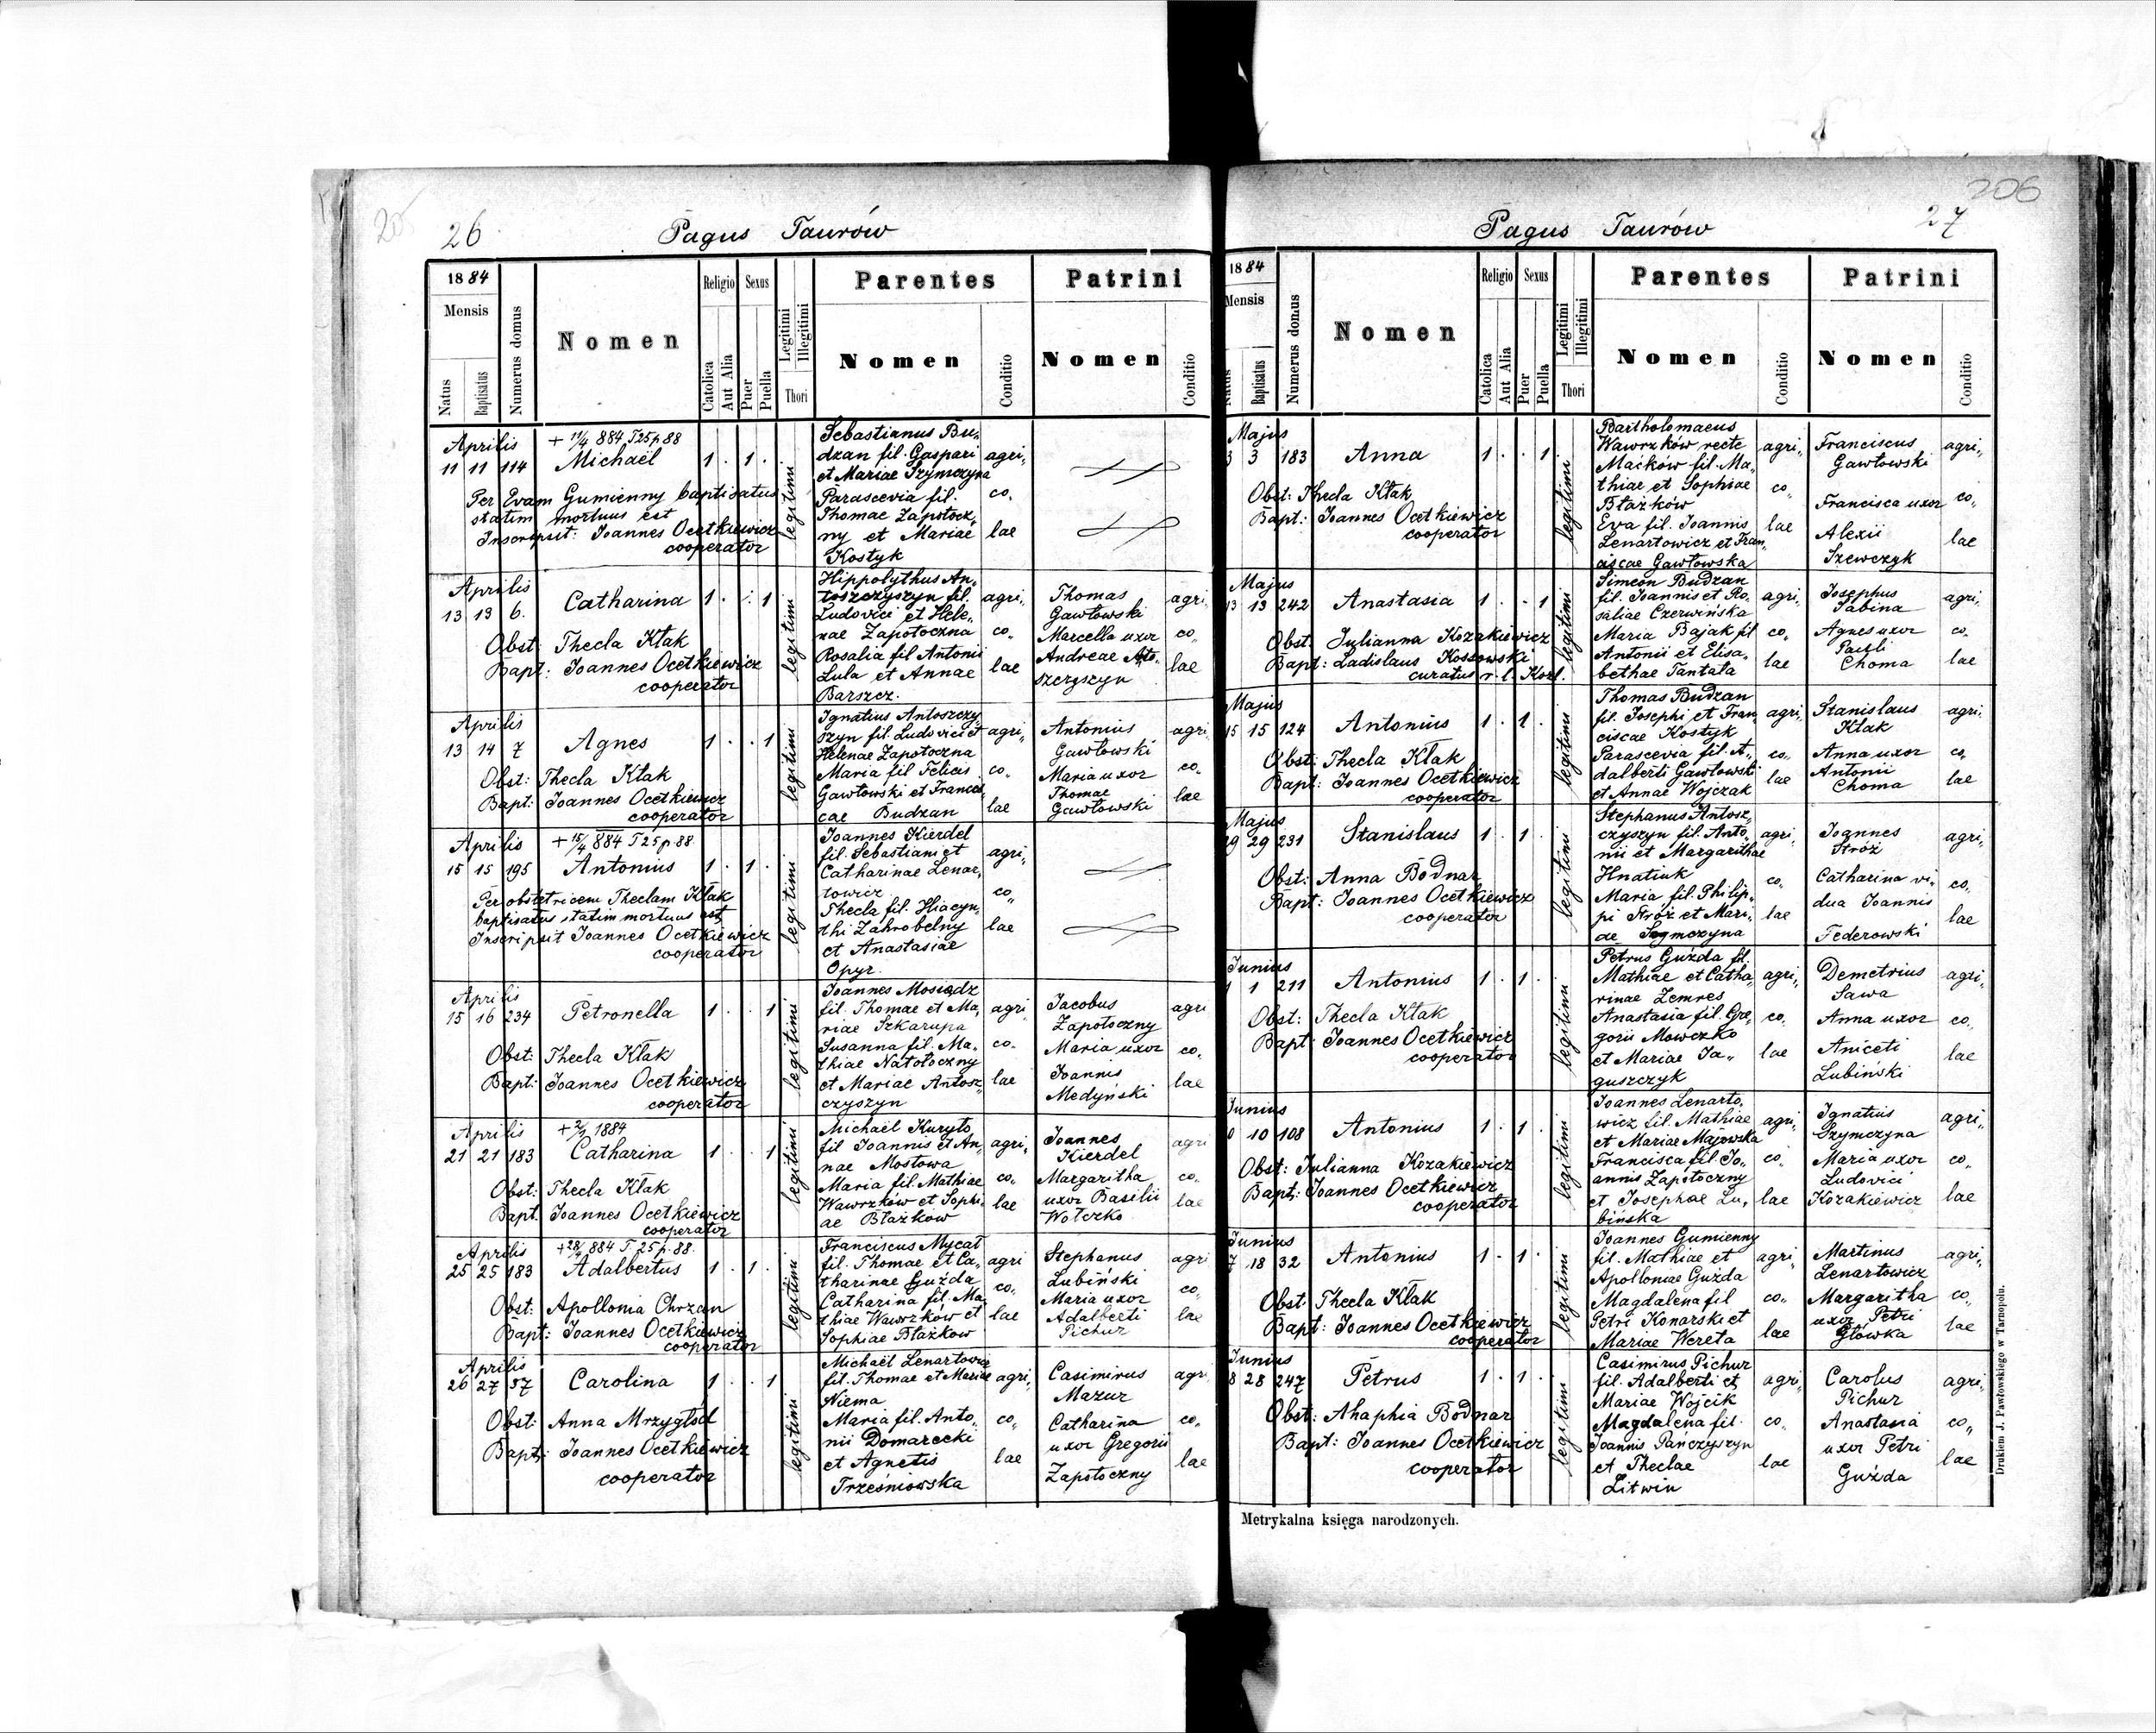 205
26
Pagus Taurów
1884
Mensis
Natus
Baptisatus
Numerus domus
Nomen
Religio
Catolica
Aut Alia
Sexus
Puer
Puella
Legitimi
Illegitimi
Thori
Parentes
Nomen
Conditio
Patrini
Nomen
Conditio
Aprilis
11 11 114
+ 11/4 884 T25p88
Michaël
1 . 1 .
Per Evam Gumienny baptisatus
statim mortuus est
Inscripsit: Joannes Ocetkiewicz
cooperator
legitimi
Sebastianus Bu„
dzan fil. Gaspari
et Mariae Szymczyna
Parascevia fil.
Thomae Zapotocz„
ny et Mariae
Kostyk
agri„
co„
lae
Aprilis
13 13 6.
Catharina
1 . . 1
Obst: Thecla Kłak
Bapt: Joannes Ocetkiewicz
cooperator
legitimi
Hippolythus An„
toszczyszyn fil.
Ludovici et Hele„
nae Zapotoczna
Rosalia fil Antonii
Lula et Annae
Barszcz.
agri„
co„
lae
Thomas
Gawłowski
Marcella uxor
Andreae Anto„
szczyszyn
agri„
co„
lae
Aprilis
13 14 7
Agnes
1 . . 1
Obst: Thecla Kłak
Bapt: Joannes Ocetkiewicz
cooperator
legitimi
Ignatius Antoszczy„
szyn fil. Ludovici et
Helenae Zapotoczna
Maria fil Felicis
Gawłowski et Francis„
cae Budzan
agri„
co„
lae
Antonius
Gawłowski
Maria uxor
Thomae
Gawłowski
agri„
co„
lae
Aprilis
15 15 195
+ 15/4 884 T25p.88
Antonius
1 . 1 .
Per obstetricem Theclam Kłak
baptisatus statim mortuus est
Inscripsit Joannes Ocetkiewicz
cooperator
legitimi
Joannes Kierdel
fil. Sebastiani et
Catharinae Lenar„
towicz
Thecla fil. Hiacyn„
thi Zahrobelny
et Anastasiae
Opyr.
agri„
co„
lae
Aprilis
15 16 234
Petronella
1 . . 1
Obst: Thecla Kłak
Bapt: Joannes Ocetkiewicz
cooperator
legitimi
Joannes Mosiądz
fil. Thomae et Ma„
riae Szkarupa
Susanna fil. Ma„
thiae Natołoczny
et Mariae Antosz„
czyszyn
agri„
co„
lae
Jacobus
Zapotoczny
Maria uxor
Joannis
Medyński
agri
co„
lae
Aprilis
21 21 183
1884
Catharina
1 . . 1
Obst: Thecla Kłak
Bapt. Joannes Ocetkiewicz
cooperator
legitimi
Michaël Kuryło
fil Joannis et An„
nae Mostowa
Maria fil. Mathiae
Wawrzków et Sophi„
ae Błażków
agri„
co„
lae
Joannes
Kierdel
Margaritha
uxor Basilii
Wołczko
agri
co„
lae
Aprilis
25 25 183
+28/4 884 T. 25 p. 88.
Adalbertus
1 . 1 .
Obst: Apollonia Chrzan
Bapt: Joannes Ocetkiewicz
cooperator
legitimi
Franciscus Mycał
fil. Thomae et Ca„
tharinae Guźda
Catharina fil. Ma„
thiae Wawrzków et
Sophiae Błażkow
agri
co„
lae
Stephanus
Lubiński
Maria uxor
Adalberti
Pichur
agri
co„
lae
Aprilis
26 27 57
Carolina
1 . . 1
Obst: Anna Mrzygłód
Bapt: Joannes Ocetkiewicz
cooperator
legitimi
Michaël Lenartowicz
fil. Thomae et Mariae
Niema
Maria fil. Anto„
nii Domarecki
et Agnetis
Trześniowska
agri„
co„
lae
Casimirus
Mazur
Catharina
uxor Gregorii
Zapotoczny
agri
co„
lae
206
27
Pagus Taurów
1884
Mensis
Natus
Baptisatus
Numerus domus
Nomen
Religio
Catolica
Aut Alia
Sexus
Puer
Puella
Legitimi
Illegitimi
Thori
Parentes
Nomen
Conditio
Patrini
Nomen
Conditio
Majus
3 3 183
Anna
1 . . 1
Obst: Thecla Kłak
Bapt: Joannes Ocetkiewicz
cooperator
legitimi
Bartholomaeus
Wawrzków recte
Maćków fil. Ma„
thiae et Sophiae
Błażków
Eva fil. Joannis
Lenartowicz et Fran„
ciscae Gawłowska
agri„
co„
lae
Franciscus
Gawłowski
Francisca uxor
Alexii
Szewczyk
agri„
co„
lae
Majus
13 13 242
Anastasia
1 . . 1
Obst. Julianna Kozakiewicz
Bapt: Ladislaus Kossowski
curatus r. l. Kozl.
legitimi
Simeon Budzan
fil. Joannis et Ro„
saliae Czerwińska
Maria Bajak fil
Antonii et Elisa„
bethae Tantała
agri„
co„
lae
Josephus
Sabina
Agnes uxor
Pauli
Choma
agri„
co„
lae
Majus
15 15 124
Antonius
1 . 1 .
Obst: Thecla Kłak
Bapt: Joannes Ocetkiewicz
cooperator
legitimi
Thomas Budzan
fil. Josephi et Fran„
ciscae Kostyk
Parascevia fil. A„
dalberti Gawłowski
et Annae Wojczak
agri„
co„
lae
Stanislaus
Kłak
Anna uxor
Antonii
Choma
agri„
co„
lae
Majus
29 29 231
Stanislaus
1 . 1 .
Obst: Anna Bodnar
Bapt: Joannes Ocetkiewicz
cooperator
legitimi
Stephanus Antosz„
czyszyn fil. Anto„
nii et Margarithae
Hnatiuk
Maria fil. Philip„
pi Stróż et Mari„
ae Szymczyna
agri„
co„
lae
Joannes
Stróż
Catharina vi„
dua Joannis
Federowski
agri„
co„
lae
Junius
1 1 211
Antonius
1 . 1 .
Obst: Thecla Kłak
Bapt: Joannes Ocetkiewicz
cooperator
legitimi
Petrus Guźda fil.
Mathiae et Catha„
rinae Zemres
Anastasia fil. Gre„
gorii Mowczko
et Mariae Ja„
guszczyk
agri„
co„
lae
Demetrius
Sawa
Anna uxor
Aniceti
Lubiński
agri„
co„
lae
Junius
10 108
Antonius
1 . 1 .
Obst: Julianna Kozakiewicz
Bapt: Joannes Ocetkiewicz
cooperator
legitimi
Joannes Lenarto„
wicz fil. Mathiae
et Mariae Majowska
Francisca fil Jo„
annis Zapotoczny
et Josephae Lu„
bińska
agri„
co„
lae
Ignatius
Szymczyna
Maria uxor
Ludovici
Kozakiewicz
agri„
co„
lae
Junius
7 18 32
Antonius
1 . 1 .
Obst: Thecla Kłak
Bapt: Joannes Ocetkiewicz
cooperator
legitimi
Joannes Gumienny
fil. Mathiae et
Apolloniae Guzda
Magdalena fil
Petri Konarski et
Mariae Wereta
agri„
co„
lae
Martinus
Lenartowicz
Margaritha
uxor Petri
Główka
agri„
co„
lae
Junius
8 28 247
Petrus
1 . 1 .
Obst: Ahaphia Bodnar
Bapt: Joannes Ocetkiewicz
cooperator
legitimi
Casimirus Pichur
fil. Adalberti et
Mariae Wojcik
Magdalena fil.
Joannis Pańczyszyn
et Theclae
Litwin
agri„
co„
lae
Carolus
Pichur
Anastasia
uxor Petri
Guźda
agri„
co„
lae
Metrykalna księga narodzonych.
Drukiem J. Pawłowskiego w Tarnopolu.